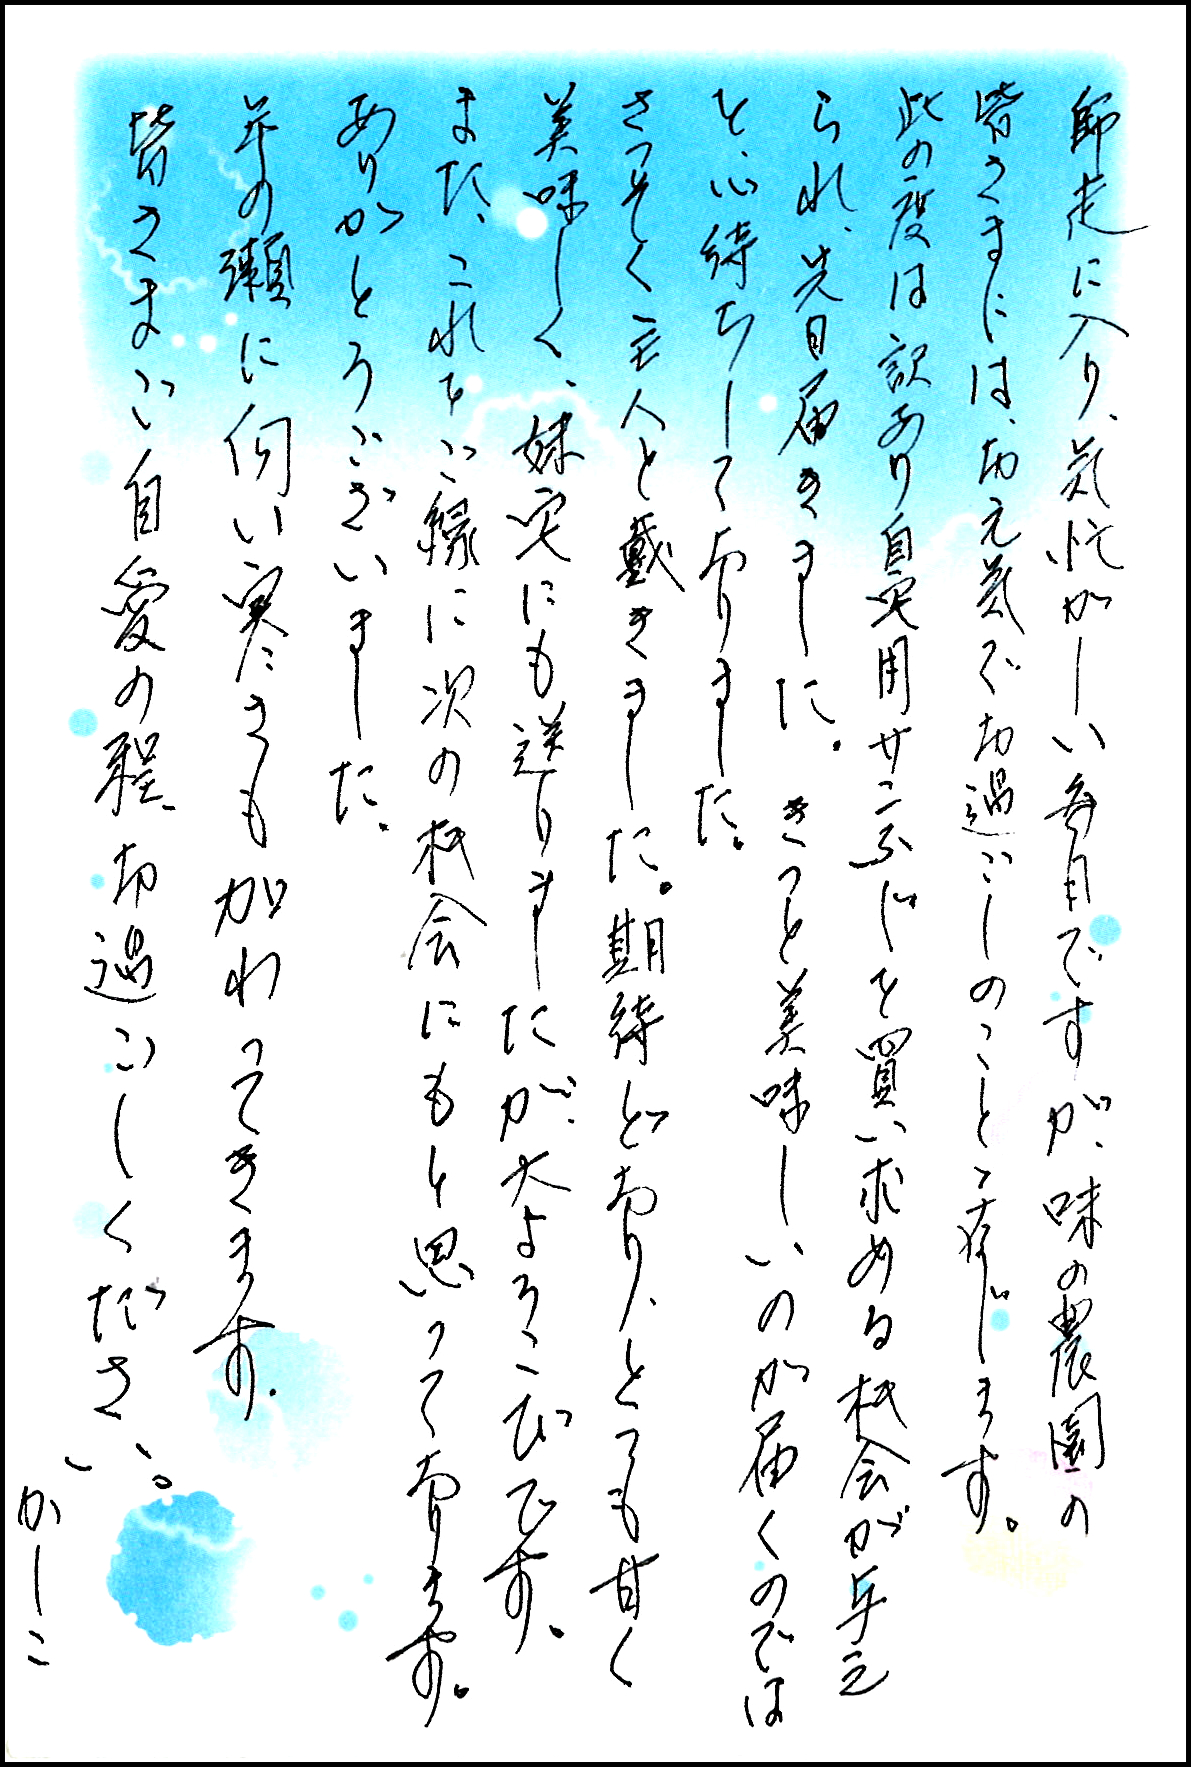 師走に入り、気忙がしい毎日ですが、味の農園の
皆さまには、お元気でお過ごしのこと存じます。
此の度は訳あり自宅用サンふじを買い求める机会が与え
られ、先日届きました。きっと美味しいのが届くのでは
と、心待ちして居りました。
さっそく主人と戴きました。期待どおり、とても甘く
美味しく、妹宅にも送りましたが、大よろこびです。
また、これをご縁に次の机会にもと思って居ります。
ありがとうございました。
年の瀬に向い寒さもがわってきます。
皆さまご自愛の程、お過ごしください。
かしこ